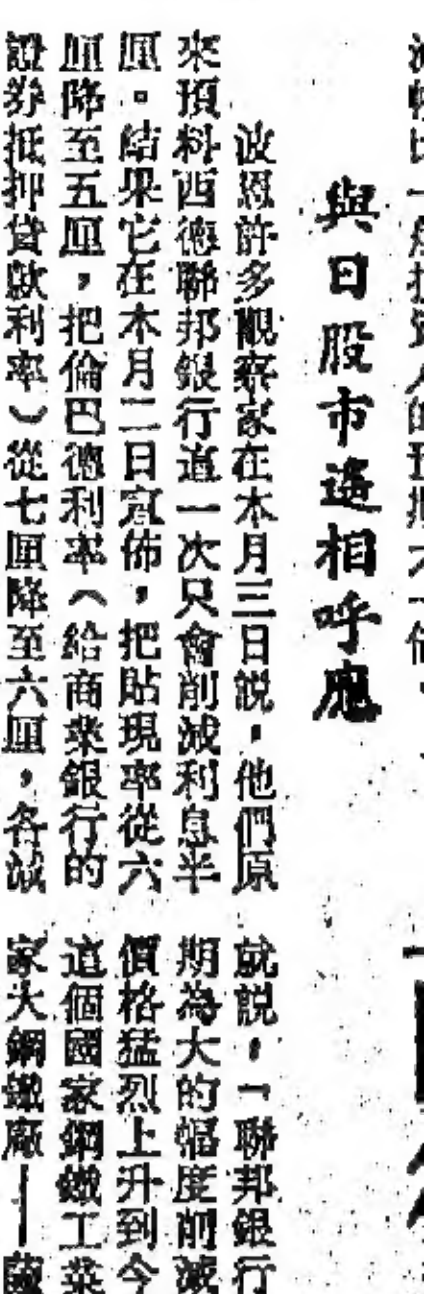 與日股市遙相呼應
波恩許多觀察家在本月三日説，他們原
來預料西德聯邦銀行這一次只會削減利息半
厘。結果它在本月二日宣佈，把貼現率從六
厘降至五厘，把倫巴德利率（給商業銀行的
證券抵押貸款利率）從七厘降至六厘，各減
就説，「聯邦銀行
期為大的幅度削減
價格猛烈上升到今
這個國家鋼鐵工業
家大鋼鐵廠——